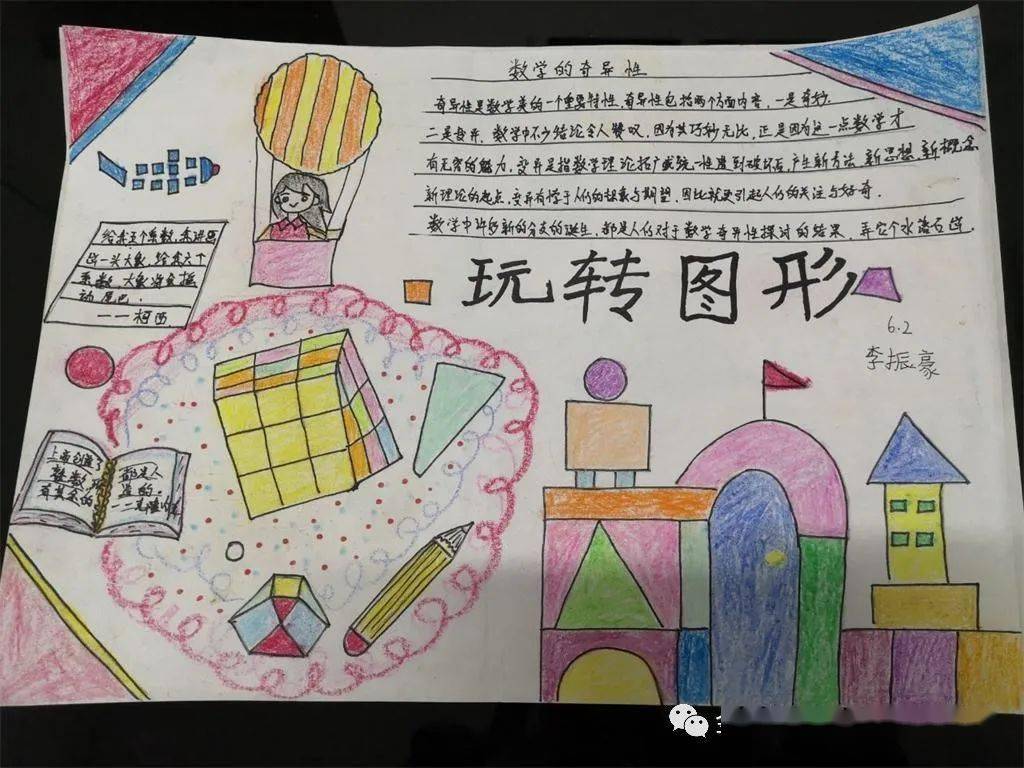 数学的奇异性
奇异性是数学美的一个重要特性,奇异性包括两个方面内容,一是奇妙,
二是变异.数学中不少结论令人赞叹,因为其巧妙无比,正是因为这一点数学才
有无穷的魅力,变异是指数学理论拓广或统一性遭到破坏后,产生新方法、新思想、新概念
新理论的起点,变异有悖于人们的想象与期望,因此就更引起人们的关注与好奇.
数学中许多新的分支的诞生,都是人们对于数学奇异性探讨的结果,
玩转图形
6.2
李振豪
给我五个系数,我讲画
出一头大象,给我六个
系数,大象将会摇
动尾巴.
——柯西
上帝创造了
整数,所
有其余的
都是人
造的.